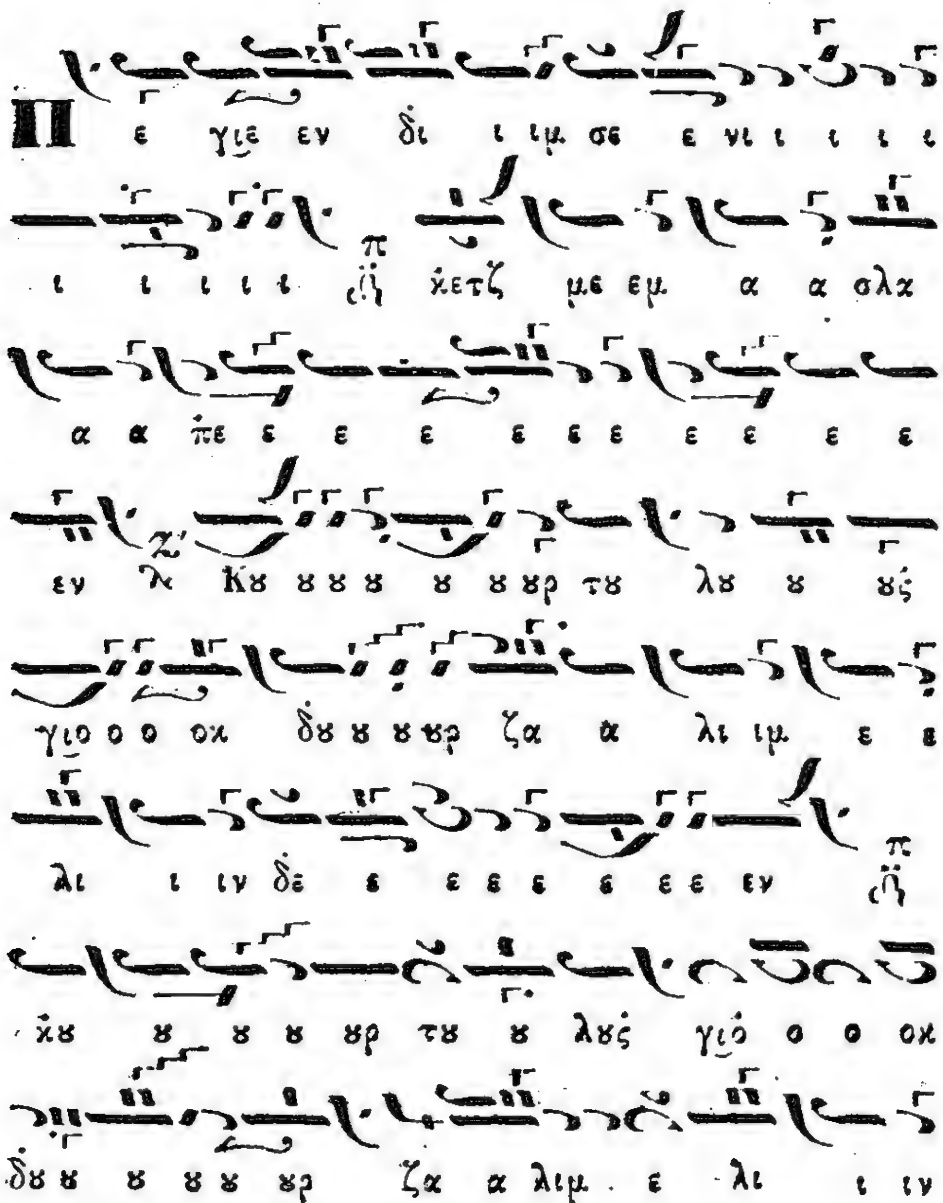 Π ε γιε εν δ̇ι ι ιμ σε ε νι ι ι ι ι ι
ι ι ι ι ι π κ̇ετζ με εμ α α σλα
α α π̇ε ε ε ε ε ε ε ε ε ε ε
εν Ζ΄ Κȣ ȣ ȣ ȣ ȣ ȣ ȣρ τȣ λȣ ȣ ȣς̇
γιο ο ο οκ δ̇ȣ ȣ ȣ ȣρ ζα α λι ιμ ε ε
λι ι ιν δ̇ε ε ε ε ε ε ε ε εν π
κ̇ȣ ȣ ȣ ȣ ȣρ τȣ ȣ λȣς̇ γιο̇ ο ο οκ
δ̇ȣ ȣ ȣ ȣ ȣ ȣρ ζα α λιμ ε λι ι ιν